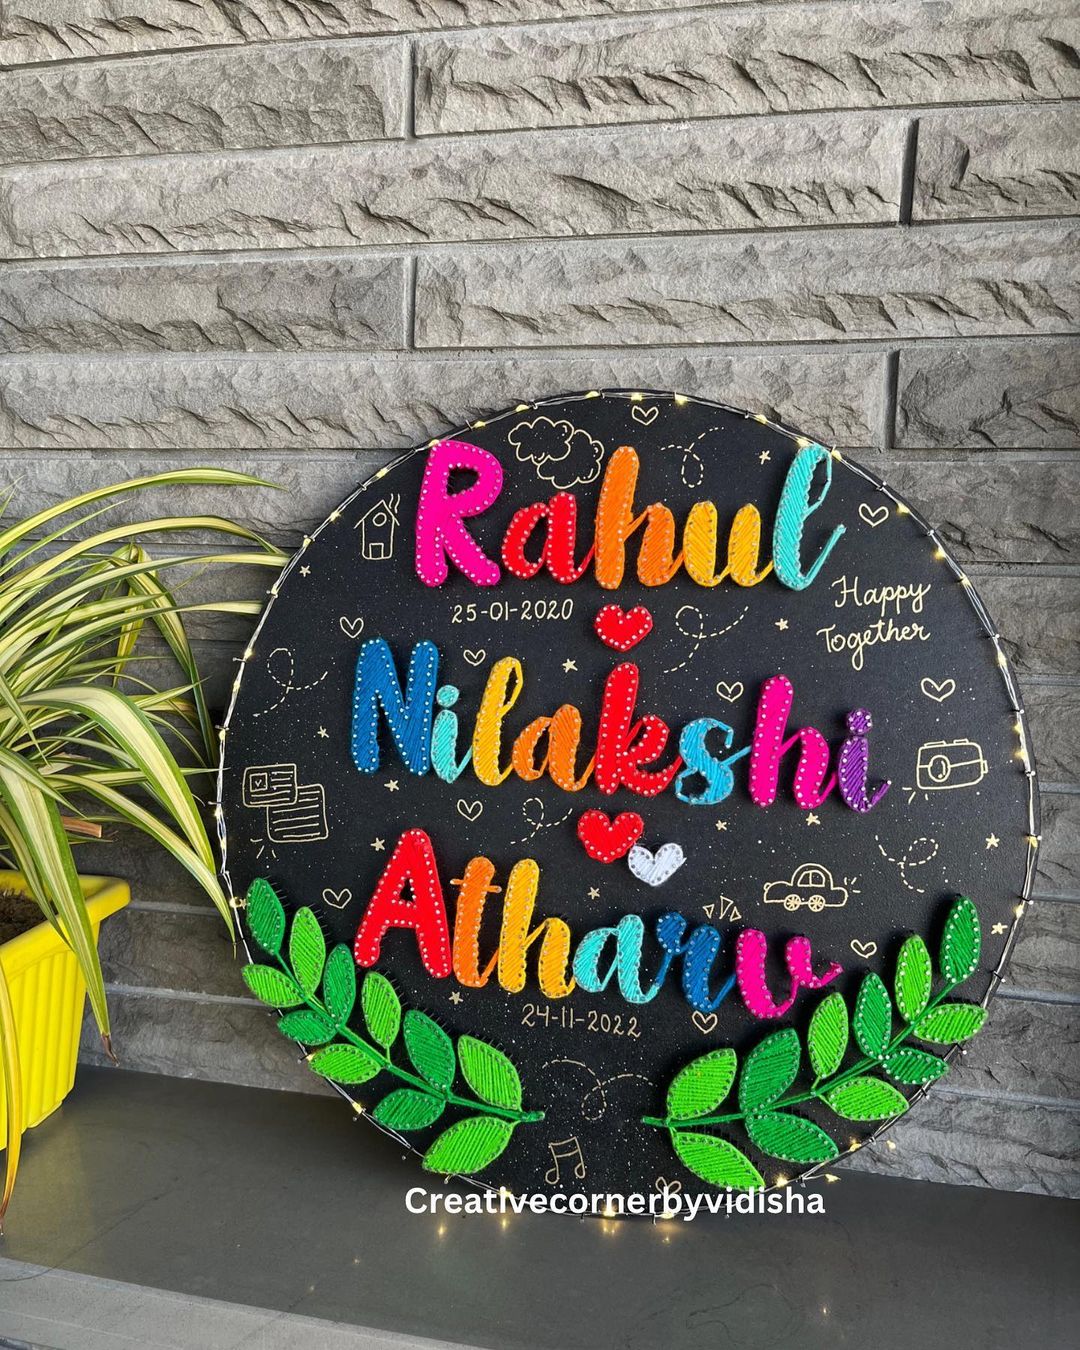 Rahul
25-01-2020
Happy
Together
Nilakshi
Atharv
24-11-2022
Creativecornerbyvidisha